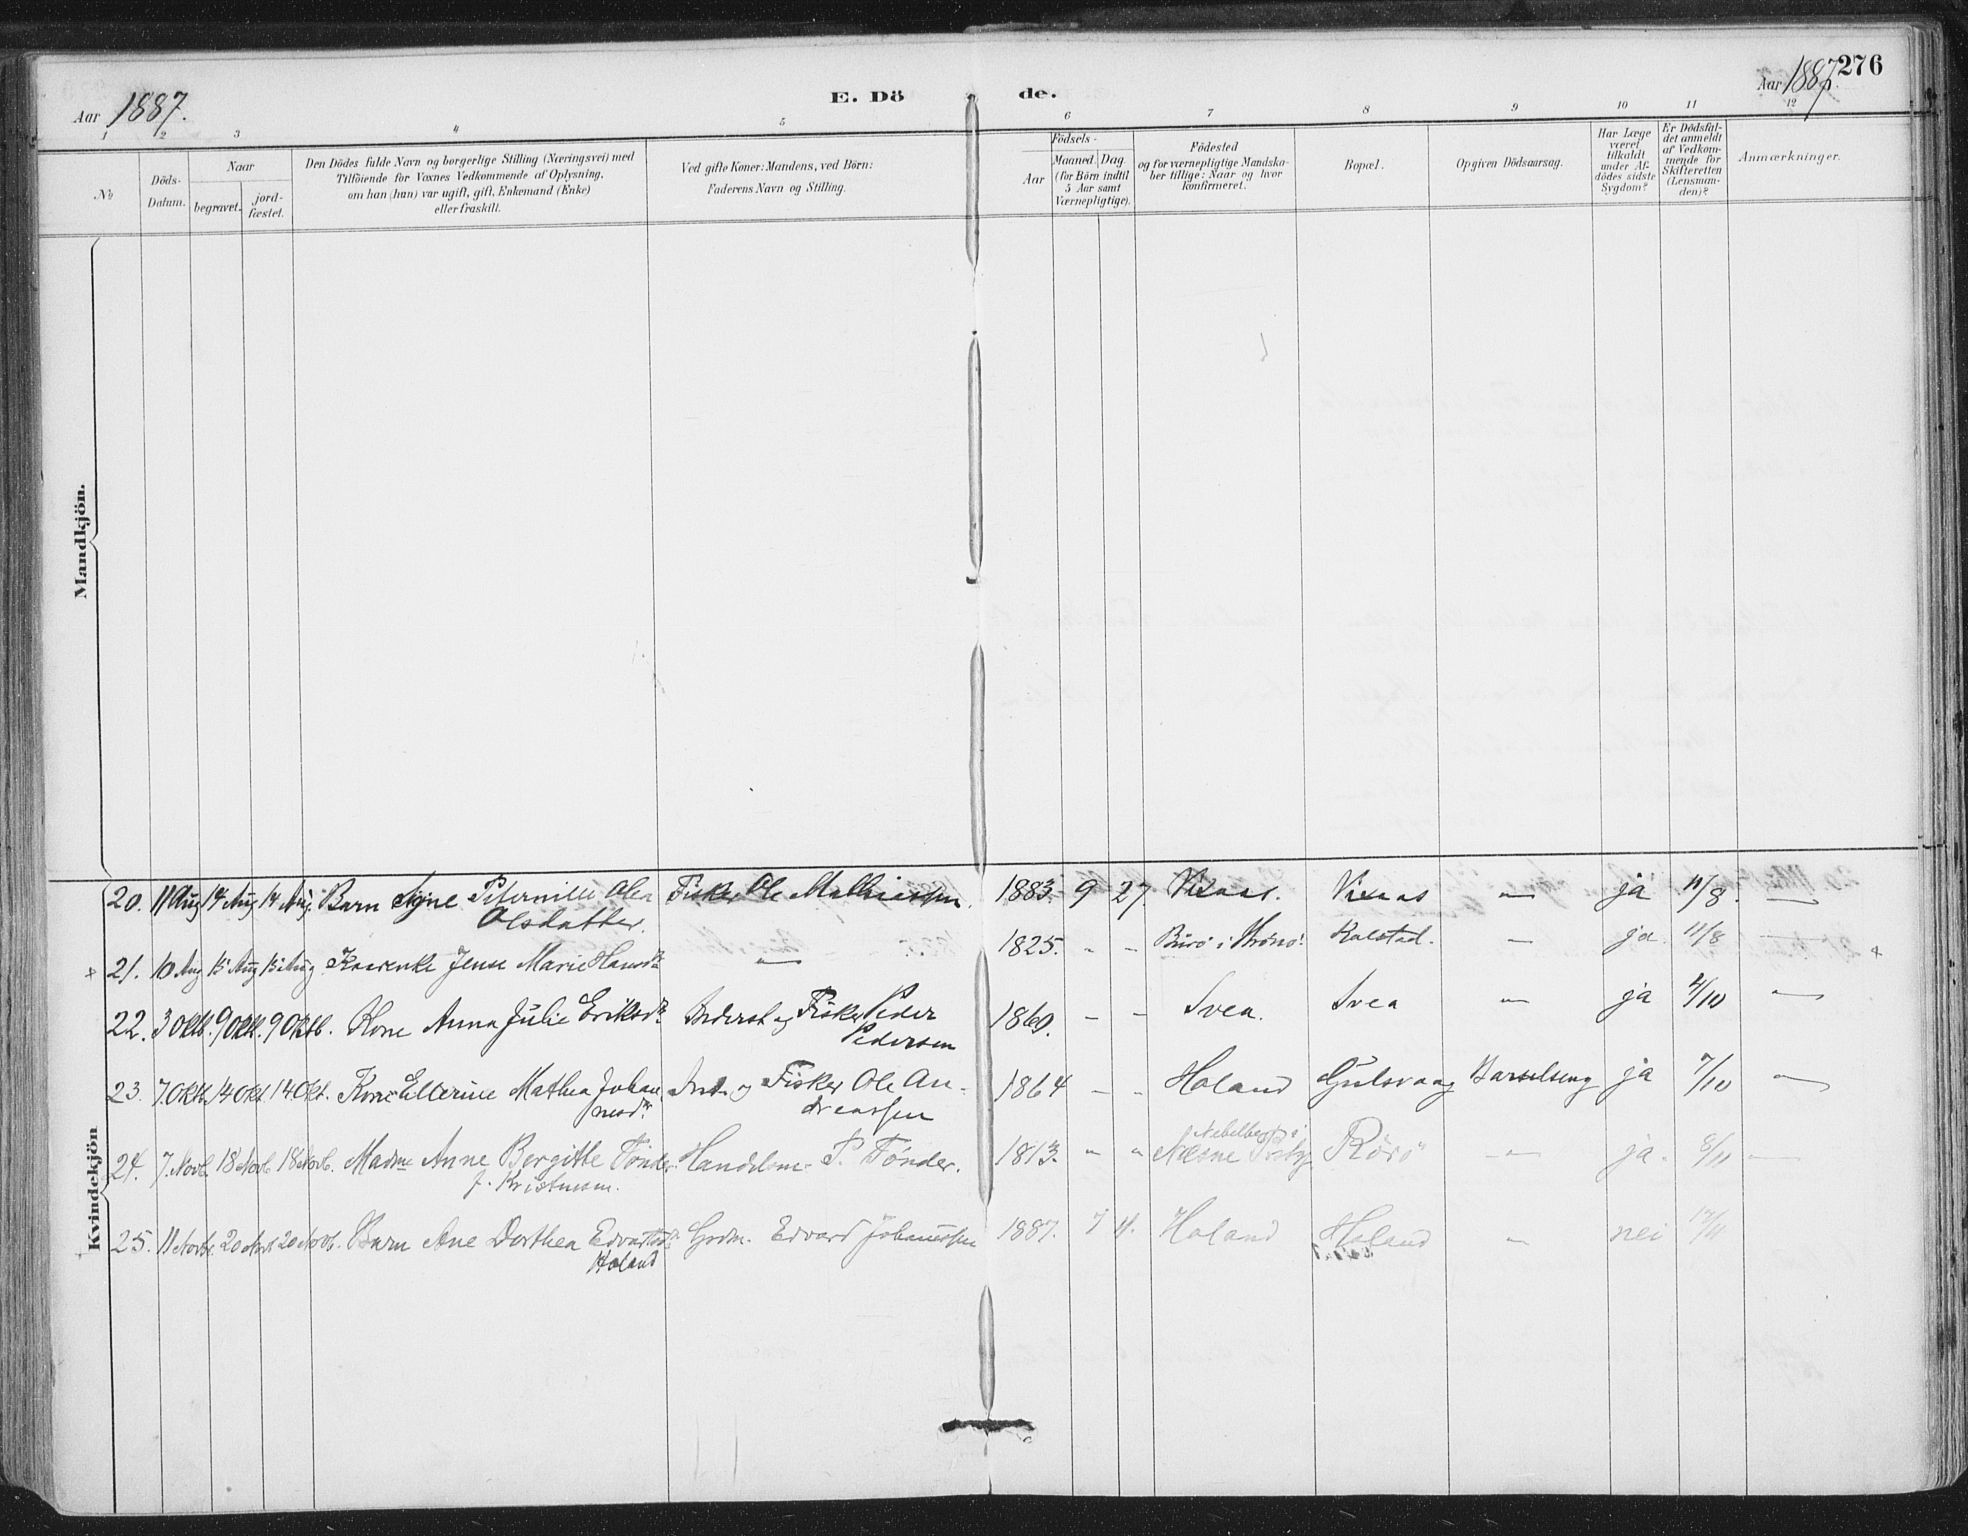 Aar 1887.
E. Dö de.
Aar 1887. 276
1 2 3 4 5 6 7 8 9 10 11 12
No
Döds-
Datum.
Naar
begravet.
jord-
fæstet.
Den Dödes fulde Navn og borgerlige Stilling (Næringsvei) med
Tilföiende for Voxnes Vedkommende af Oplysning,
om han (hun) var ugift, gift, Enkemand (Enke)
eller fraskilt.
Ved gifte Koner: Mandens, ved Börn:
Faderens Navn og Stilling.
Födsels-
Aar
Maaned. Dag.
(for Börn indtil
5 Aar samt
Værnepligtige).
Födested
og for værnepligtige Mandska-
ber tillige: Naar og hvor
konfirmeret.
Bopæl.
Opgiven Dödsaarsag.
Har Læge
været
tilkaldt
under Af-
dödes sidste
Sygdom?
Er Dödsfal-
det anmeldt
af Vedkom-
mende for
Skifteretten
(Lensman-
den)?
Anmærkninger.
Mandkjön.
Kvindekjön
20. 11 Aug 14 Aug 14 Aug. Barn Signe Petermille Olea Fisker Ole Mathiassen. 1883. 9 27 — ja 11/8. —
Olsdatter.
21. 10 Aug 15 Aug 15 Aug Jense Marie Hansdr — 1825. - - Kalstad. — ja 11/8 —
22. 3 Oktb. 9 Okt. 9 Oktb. Kone Anna Julie Eriksdr og Fisker Peder 1860. - - Svea. Svea — ja 4/10 —
Pedersen
23. 7. Oktb. 14 Okt. 14 Okt. Kone Ellerine Mathea Johan- Ind. og Fisker Ole An- 1864 - - Holand Gulsvaag Barselseng ja 7/10 —
nesdr. dreassen
24. 7. Novb. 18 Novb. 18 Novb. Madme Anne Bergitte Tönder Handelsm. P. Tönder. 1813. - - Næsne Rörö — ja. 8/11 —
f. Kristensen.
25. 11 Novbr. 20 Novb. 20 Novb. Barn Ane Dorthea Edvardsdr Grdm. Edvard Johannessen 1887. 7 4. Holand Holand — nei 17/11
Holand